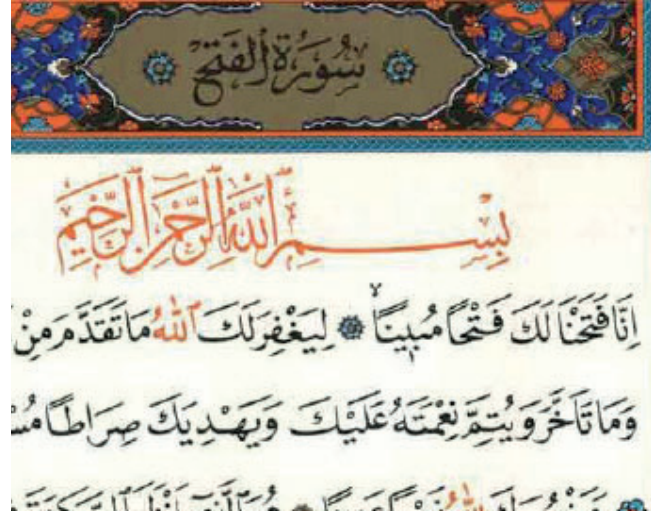 سُورَةُ ٱلْفَتْحِ
بِسْمِ ٱللّٰهِ ٱلرَّحْمٰنِ ٱلرَّحِيمِ
اِنَّا فَتَحْنَا لَكَ فَتْحًا مُبِينًا لِيَغْفِرَ لَكَ ٱللّٰهُ مَا تَقَدَّمَ مِنْ
وَمَا تَاَخَّرَ وَيُتِمَّ نِعْمَتَهُ عَلَيْكَ وَيَهْدِيَكَ صِرَاطًا